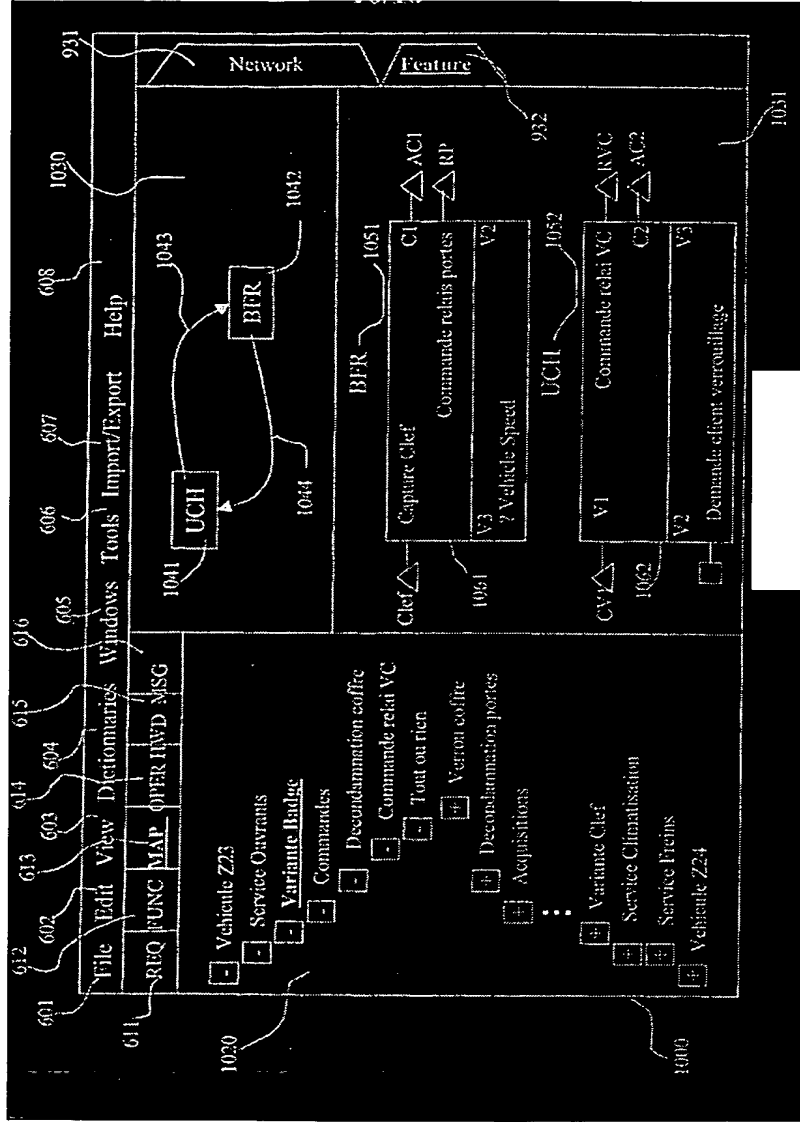 601
602
603
604
605
606
607
608
File Edit View Dictionnaries Windows Tools Import/Export Help
611
612
613
614
615
616
REQ FUNC MAP OPER HWD MSG
1020
- Vehicule Z23
- Service Ouvrants
- Variante Badge
- Commandes
- Decondamnation coffre
- Commande relai VC
- Tout ou rien
+ Verrou coffre
+ Decondamnation portes
+ Acquisitions
...
+ Variante Clef
+ Service Climatisation
+ Service Freins
+ Vehicule Z24
1000
1030
1041
UCH
1043
1044
BFR
1042
931
Network
Feature
932
1031
BFR
1051
Clef
Capture Clef
C1
AC1
Commande relais portes
RP
1061
V3
V2
? Vehicle Speed
UCH
1052
CV1
V1
Commande relai VC
RVC
C2
AC2
1062
V2
V3
Demande client verrouillage